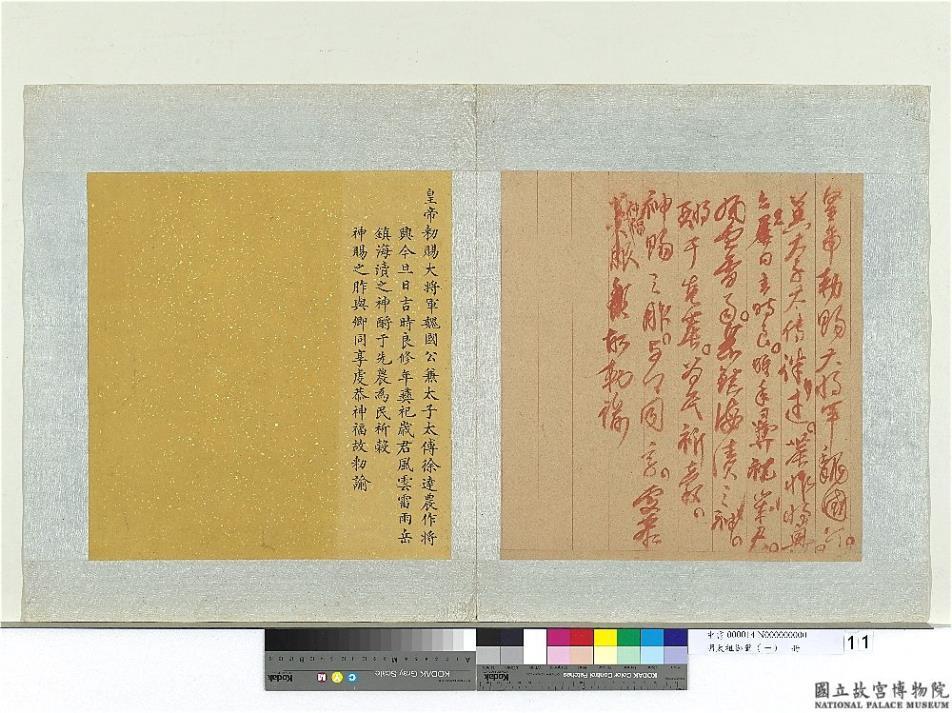 皇帝勅賜大將軍魏國公
兼太子太傅徐達農作將興
今旦日吉時良修年彞祀歲君
風雲雷雨岳鎮海瀆之神
酹于先農為民祈穀
神賜之胙與卿同享虔恭
神福
故勅諭
皇帝勅賜大將軍魏國公兼太子太傅徐達農作將
興今旦日吉時良修年彞祀歲君風雲雷雨岳
鎮海瀆之神酹于先農為民祈穀
神賜之胙與卿同享虔恭神福故勅諭
KODAK Gray Scale
Kodak
C
Y
M
A
Kodak
KODAK Color Control Patches
000014 N000000000
明太祖御筆(一) 冊
11
國立故宮博物院
NATIONAL PALACE MUSEUM